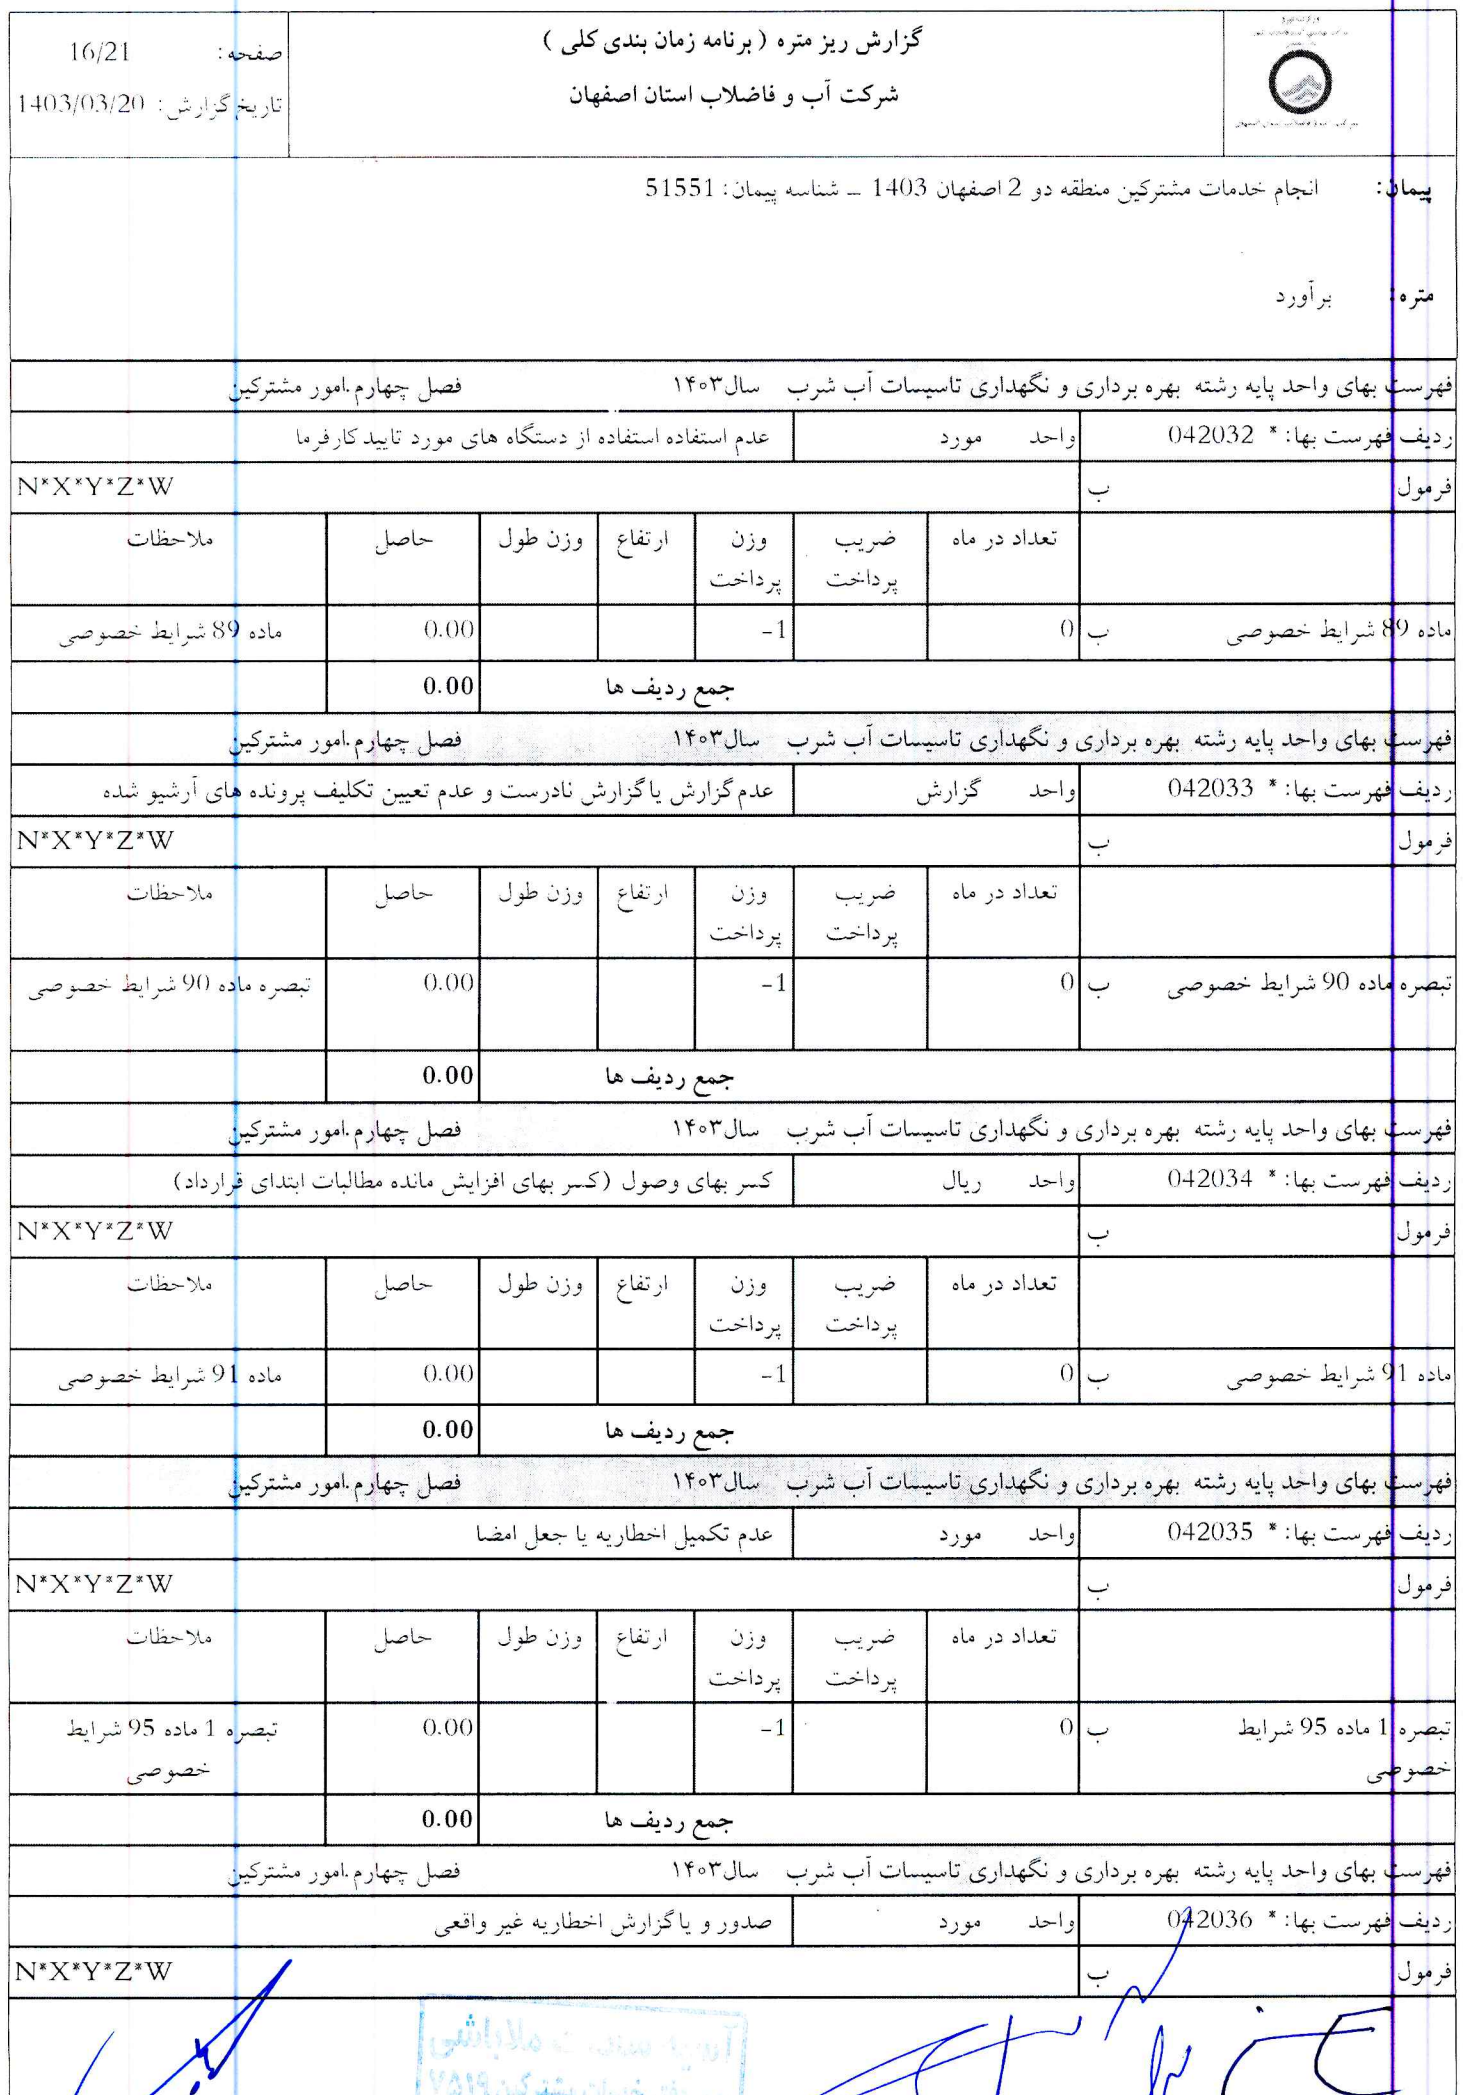 گزارش ریز متره ( برنامه زمان بندی کلی )
شرکت آب و فاضلاب استان اصفهان
صفحه: 16/21
تاریخ گزارش: 1403/03/20
پیمان: انجام خدمات مشترکین منطقه دو 2 اصفهان 1403 – شناسه پیمان: 51551
متره: برآورد
فهرست بهای واحد پایه رشته بهره برداری و نگهداری تاسیسات آب شرب سال۱۴۰۳ فصل چهارم.امور مشترکین
ردیف فهرست بها: * 042032 واحد مورد عدم استفاده استفاده از دستگاه های مورد تایید کارفرما
فرمول ب N*X*Y*Z*W
تعداد در ماه ضریب پرداخت وزن پرداخت ارتفاع وزن طول حاصل ملاحظات
ماده 89 شرایط خصوصی ب 0 -1 0.00 ماده 89 شرایط خصوصی
جمع ردیف ها 0.00
فهرست بهای واحد پایه رشته بهره برداری و نگهداری تاسیسات آب شرب سال۱۴۰۳ فصل چهارم.امور مشترکین
ردیف فهرست بها: * 042033 واحد گزارش عدم گزارش یا گزارش نادرست و عدم تعیین تکلیف پرونده های آرشیو شده
فرمول ب N*X*Y*Z*W
تعداد در ماه ضریب پرداخت وزن پرداخت ارتفاع وزن طول حاصل ملاحظات
تبصره ماده 90 شرایط خصوصی ب 0 -1 0.00 تبصره ماده 90 شرایط خصوصی
جمع ردیف ها 0.00
فهرست بهای واحد پایه رشته بهره برداری و نگهداری تاسیسات آب شرب سال۱۴۰۳ فصل چهارم.امور مشترکین
ردیف فهرست بها: * 042034 واحد ریال کسر بهای وصول (کسر بهای افزایش مانده مطالبات ابتدای قرارداد)
فرمول ب N*X*Y*Z*W
تعداد در ماه ضریب پرداخت وزن پرداخت ارتفاع وزن طول حاصل ملاحظات
ماده 91 شرایط خصوصی ب 0 -1 0.00 ماده 91 شرایط خصوصی
جمع ردیف ها 0.00
فهرست بهای واحد پایه رشته بهره برداری و نگهداری تاسیسات آب شرب سال۱۴۰۳ فصل چهارم.امور مشترکین
ردیف فهرست بها: * 042035 واحد مورد عدم تکمیل اخطاریه یا جعل امضا
فرمول ب N*X*Y*Z*W
تعداد در ماه ضریب پرداخت وزن پرداخت ارتفاع وزن طول حاصل ملاحظات
تبصره 1 ماده 95 شرایط خصوصی ب 0 -1 0.00 تبصره 1 ماده 95 شرایط خصوصی
جمع ردیف ها 0.00
فهرست بهای واحد پایه رشته بهره برداری و نگهداری تاسیسات آب شرب سال۱۴۰۳ فصل چهارم.امور مشترکین
ردیف فهرست بها: * 042036 واحد مورد صدور و یا گزارش اخطاریه غیر واقعی
فرمول ب N*X*Y*Z*W